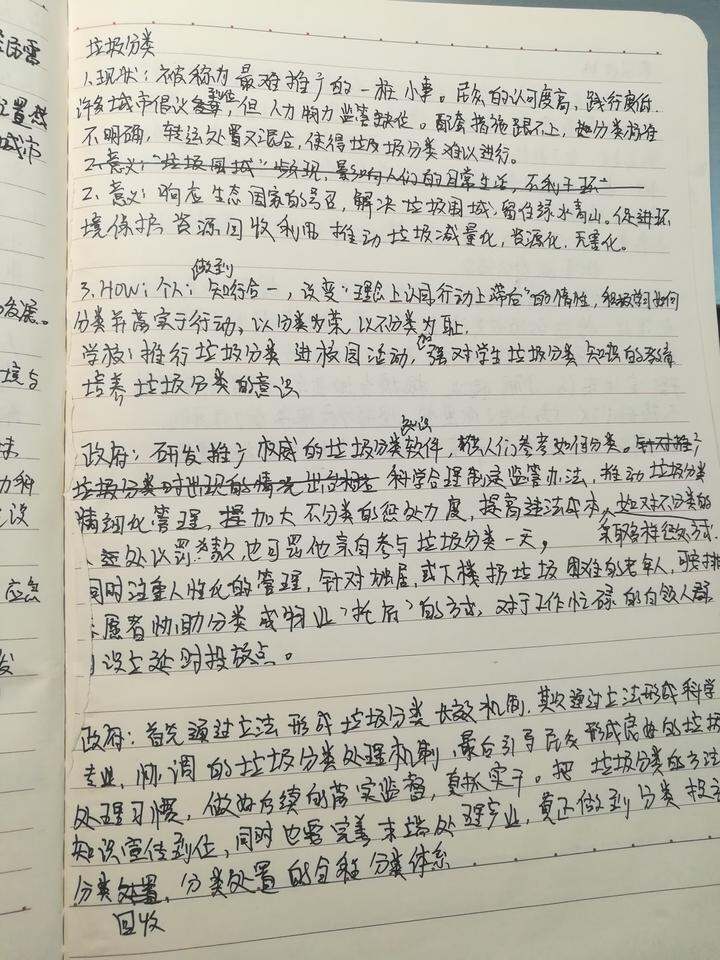 垃圾分类
1.现状：被称为最难推广的一桩小事。居众的认可度高，践行度低.
许多城市倡议到位，但人力物力监管缺位。配套措施跟不上，如分类标准
不明确，转运处置又混合，使得垃圾分类难以进行。
2.意义："垃圾围城"
2.意义：响应生态国家的号召，解决垃圾围城，留住绿水青山。促进环
境保护资源回收利用 推动垃圾减量化，资源化，无害化。
做到
3.HOW：个人：知行合一，改变"理念上认同行动上滞后"的惰性，积极学习如何
分类并落实于行动，以分类为荣，以不分类为耻.
学校：推行垃圾分类进校园活动，加强对学生垃圾分类知识的教育
培养垃圾分类的意识
政府：研发推广权威的垃圾分类软件，供人们参考如何分类。针对推广
垃圾分类时出现的情况 科学合理制定监管办法，推动垃圾分类
精细化管理，加大不分类的惩处力度，提高违法成本，如对不分类的
采取多样惩处方式.
人处以罚款，也可罚他亲自参与垃圾分类一天，
同时注重人性化的管理，针对独居，或下楼扔垃圾困难的老年人，可安排
志愿者协助分类或物业"托底"的方式，对于工作忙碌的白领人群
设立延时投放点。
政府：首先通过立法形成垃圾分类长效机制，其次通过立法形成科学
专业，协调的垃圾分类处理机制，最后引导居众形成良好的垃圾
处理习惯，做好后续的落实监督，真抓实干。把垃圾分类的方法
知识宣传到位，同时也要完善末端处理产业，真正做到分类投放
分类处置，分类处置的全程分类体系
回收